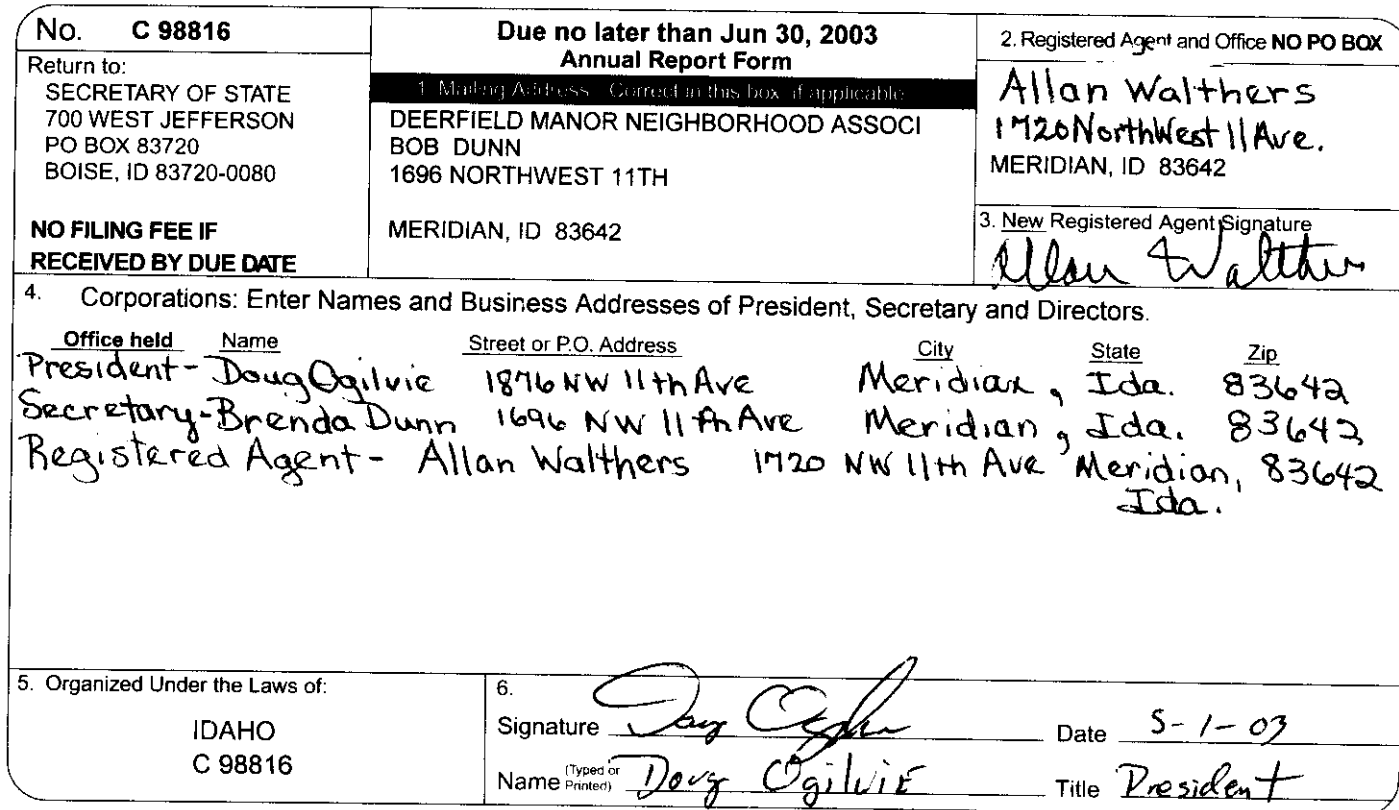 No. C 98816
Return to:
SECRETARY OF STATE
700 WEST JEFFERSON
PO BOX 83720
BOISE, ID 83720-0080
NO FILING FEE IF
RECEIVED BY DUE DATE
Due no later than Jun 30, 2003
Annual Report Form
1. Mailing Address Correct in this box if applicable
DEERFIELD MANOR NEIGHBORHOOD ASSOCI
BOB DUNN
1696 NORTHWEST 11TH
MERIDIAN, ID 83642
2. Registered Agent and Office NO PO BOX
Allan Walthers
1720 NorthWest 11 Ave.
MERIDIAN, ID 83642
3. New Registered Agent Signature
Allan Walthers
4. Corporations: Enter Names and Business Addresses of President, Secretary and Directors.
Office held Name Street or P.O. Address City State Zip
President - Doug Ogilvie 1876 NW 11th Ave Meridian, Ida. 83642
Secretary - Brenda Dunn 1696 NW 11th Ave Meridian, Ida. 83642
Registered Agent - Allan Walthers 1720 NW 11th Ave Meridian, 83642
Ida.
5. Organized Under the Laws of:
IDAHO
C 98816
6.
Signature Doug Ogilvie Date 5-1-03
Name (Typed or Printed) Doug Ogilvie Title President